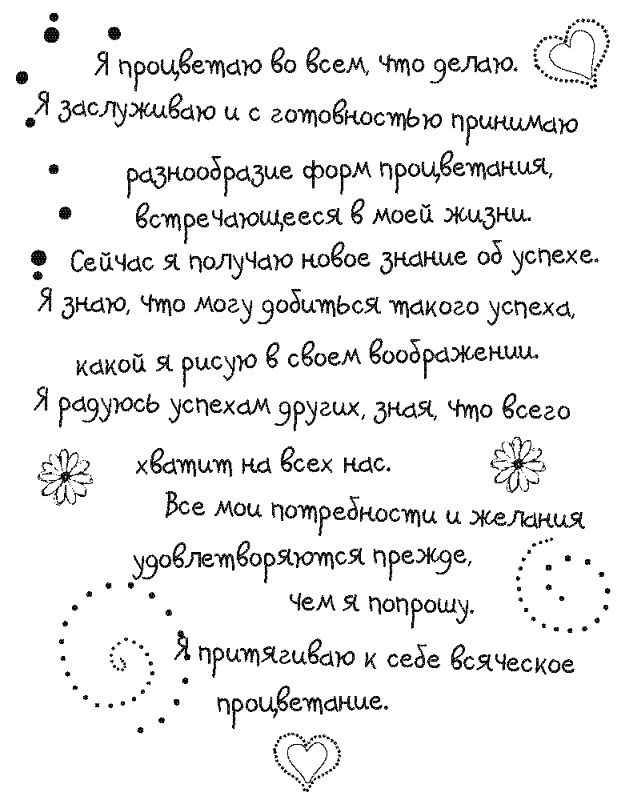 Я процветаю во всем, что делаю.
Я заслуживаю и с готовностью принимаю
разнообразие форм процветания,
встречающееся в моей жизни.
Сейчас я получаю новое знание об успехе.
Я знаю, что могу добиться такого успеха,
какой я рисую в своем воображении.
Я радуюсь успехам других, зная, что всего
хватит на всех нас.
Все мои потребности и желания
удовлетворяются прежде,
чем я попрошу.
Я притягиваю к себе всяческое
процветание.